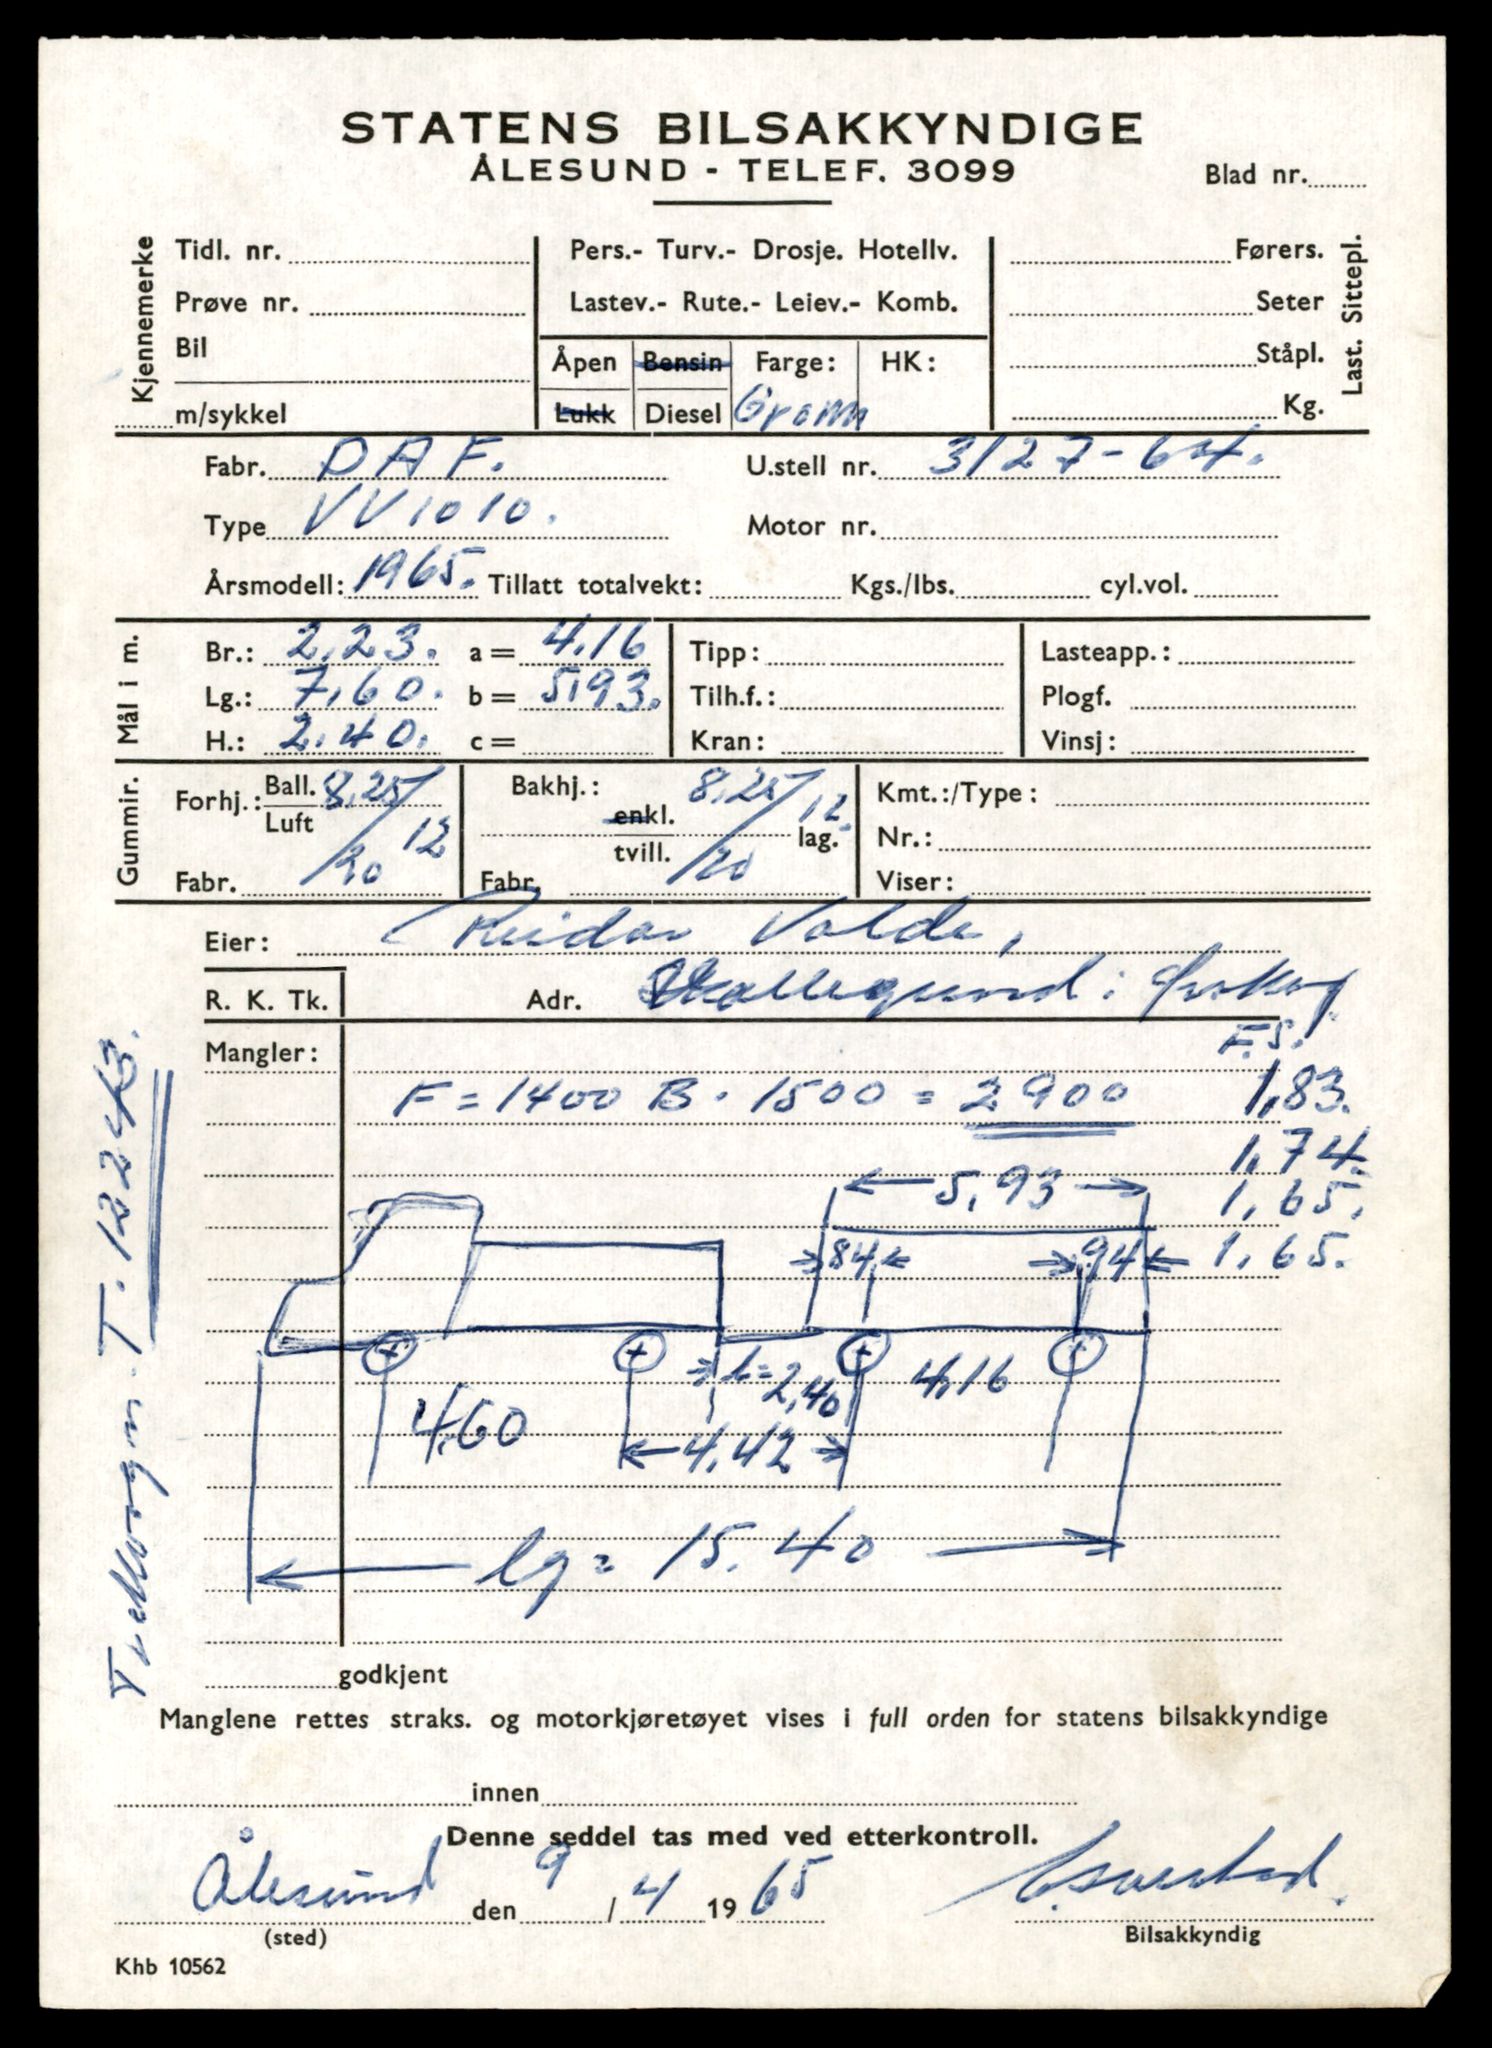 STATENS BILSAKKYNDIGE
ÅLESUND - TELEF. 3099
Blad nr.
Kjennemerke
Tidl. nr.
Prøve nr.
Bil
m/sykkel
Pers.- Turv.- Drosje. Hotellv.
Lastev.- Rute.- Leiev.- Komb.
Åpen Bensin Farge: HK:
Lukk Diesel Grønn
Førers.
Seter
Ståpl.
Kg.
Last. Sittepl.
Fabr. DAF. U.stell nr. 3127-64.
Type VV1010. Motor nr.
Årsmodell: 1965. Tillatt totalvekt: Kgs./lbs. cyl.vol.
Mål i m.
Br.: 2.23. a = 4.16 Tipp: Lasteapp.:
Lg.: 7,60. b = 5,93. Tilh.f.: Plogf.
H.: 2.40. c = Kran: Vinsj:
Gummir.
Forhj.: Ball. Luft 8,25/20 12
Fabr.
Bakhj.: enkl. tvill. 8,25/20 12. lag.
Fabr.
Kmt.:/Type:
Nr.:
Viser:
Eier: Reidar Valde,
R. K. Tk. Adr. i Ørskog
Mangler: F.S.
F = 1400 B. 1500 = 2900 1,83.
1,74.
5,93 1,65.
84 94 1,65.
l = 2,40 4,16
4,60
4,42
lg = 15.40
Trekkvogn T. 12243.
godkjent
Manglene rettes straks. og motorkjøretøyet vises i full orden for statens bilsakkyndige
innen
Denne seddel tas med ved etterkontroll.
Ålesund den 9 / 4 19 65
(sted)
Bilsakkyndig
Khb 10562